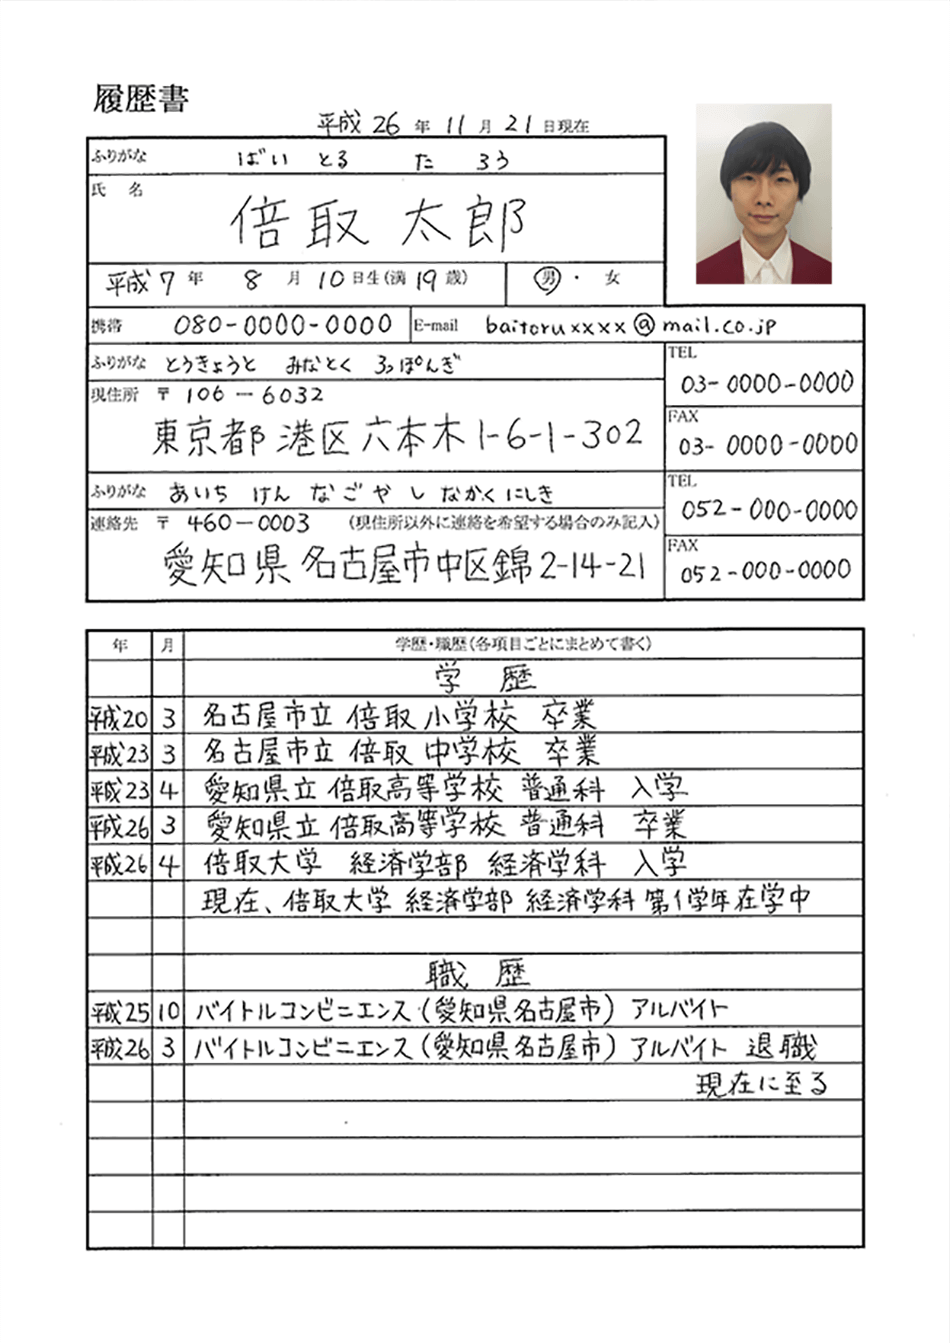 履歴書
平成 26 年 11 月 21 日現在
ふりがな ばい とる た ろう
氏 名
倍取 太郎
平成 7 年 8 月 10 日生(満 19 歳) 男 ・ 女
携帯 080-0000-0000 E-mail baitoruxxxx@mail.co.jp
ふりがな とうきょうと みなとく ろっぽんぎ
TEL
03-0000-0000
現住所 〒 106-6032
東京都 港区 六本木 1-6-1-302
FAX
03-0000-0000
ふりがな あいち けん なごや し なかく にしき
TEL
052-000-0000
連絡先 〒 460-0003 (現住所以外に連絡を希望する場合のみ記入)
愛知県 名古屋市中区錦 2-14-21
FAX
052-000-0000
年 月 学歴・職歴(各項目ごとにまとめて書く)
学 歴
平成20 3 名古屋市立 倍取 小学校 卒業
平成23 3 名古屋市立 倍取 中学校 卒業
平成23 4 愛知県立 倍取高等学校 普通科 入学
平成26 3 愛知県立 倍取高等学校 普通科 卒業
平成26 4 倍取大学 経済学部 経済学科 入学
現在、倍取大学 経済学部 経済学科 第1学年在学中
職 歴
平成25 10 バイトルコンビニエンス(愛知県名古屋市) アルバイト
平成26 3 バイトルコンビニエンス(愛知県名古屋市) アルバイト 退職
現在に至る